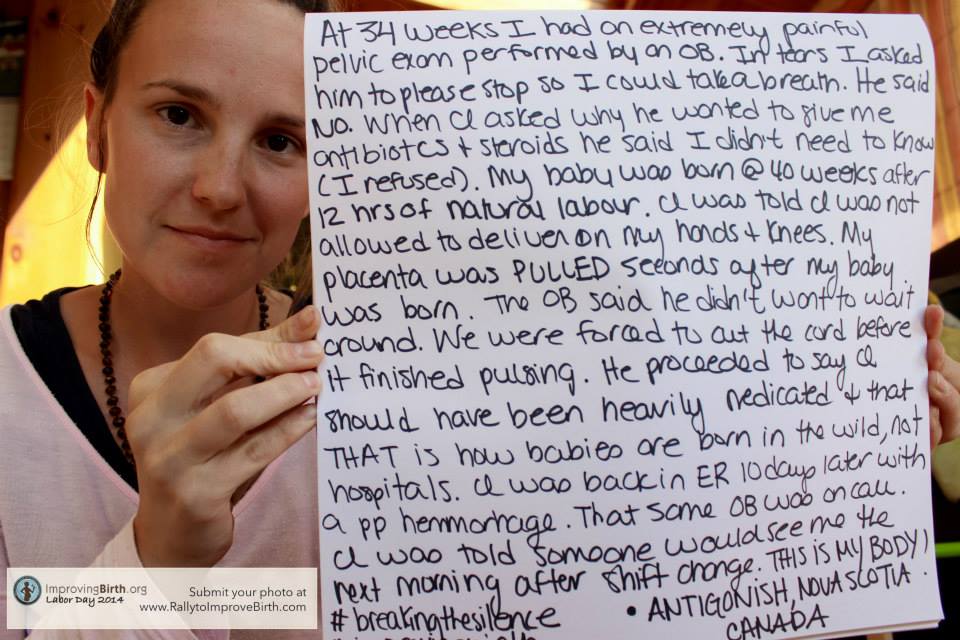 At 34 weeks I had an extremely painful
pelvic exam performed by an OB. In tears I asked
him to please stop so I could take a breath. He said
NO. When I asked why he wanted to give me
antibiotcs + steroids he said I didn't need to know
(I refused). My baby was born @ 40 weeks after
12 hrs of natural labour. I was told I was not
allowed to deliver on my hands + knees. My
placenta was PULLED seconds after my baby
was born. The OB said he didn't want to wait
around. We were forced to cut the cord before
it finished pulsing. He proceeded to say I
should have been heavily medicated & that
THAT is how babies are born in the wild, not
hospitals. I was back in ER 10 days later with
a pp hemmorhage. That same OB was on call.
I was told someone would see me the
next morning after shift change. THIS IS MY BODY!
#breakingthesilence
• ANTIGONISH, NOVA SCOTIA.
CANADA
ImprovingBirth.org
Labor Day 2014
Submit your photo at
www.RallytoImproveBirth.com